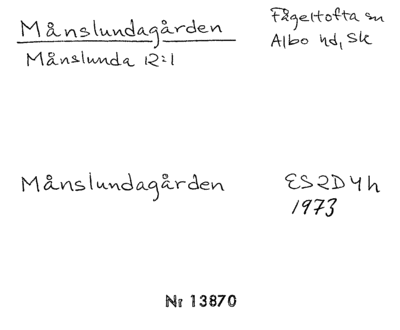 Månslundagården
Fågeltofta sn
Månslunda 12:1
Albo hd, Sk
Månslundagården
ES2D4h
1973
Nr 13870